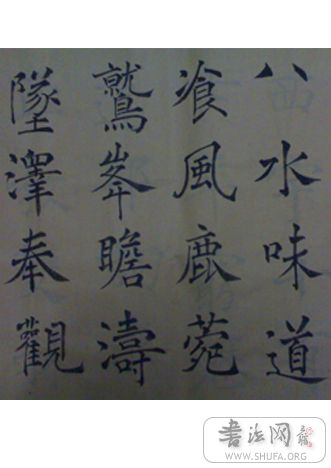 八水味道
飡風鹿菀
鷲峯瞻濤
墜澤奉觀
書法网
WWW.SHUFA.ORG